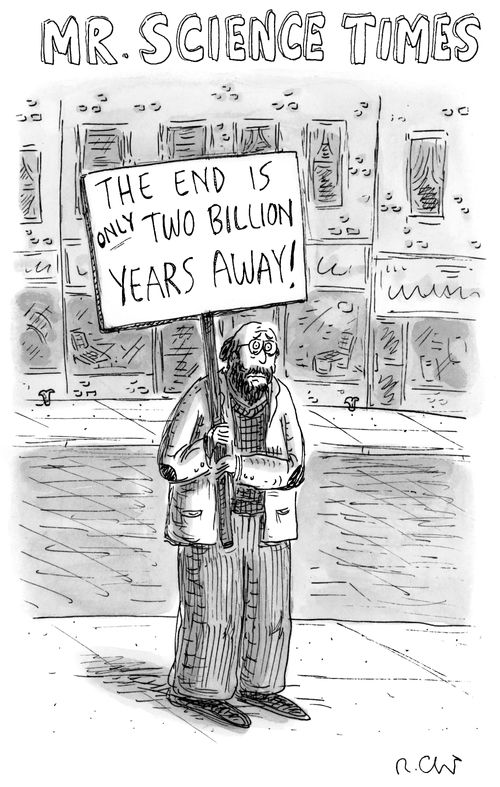 MR. SCIENCE TIMES
THE END IS
ONLY TWO BILLION
YEARS AWAY!
R. Chr